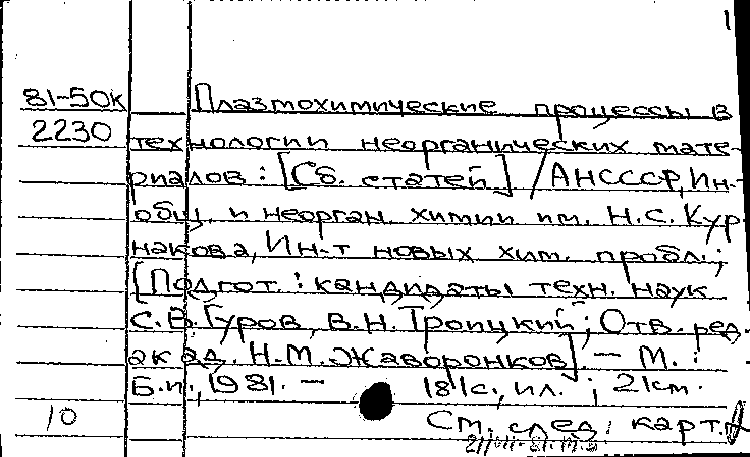 1
81-50к Плазмохимические процессы в
2230 технологии неорганических мате-
риалов : [Сб. статей] / АН СССР, Ин-т
общ. и неорган. химии им. Н.С. Кур-
накова, Ин-т новых хим. пробл.;
[Подгот.: кандидаты техн. наук
С.В. Гуров, В.Н. Троицкий; Отв. ред.
акад. Н.М. Жаворонков]. — М. :
Б.и., 1981. — 181с., ил. ; 21см.
10 См. след. карт.